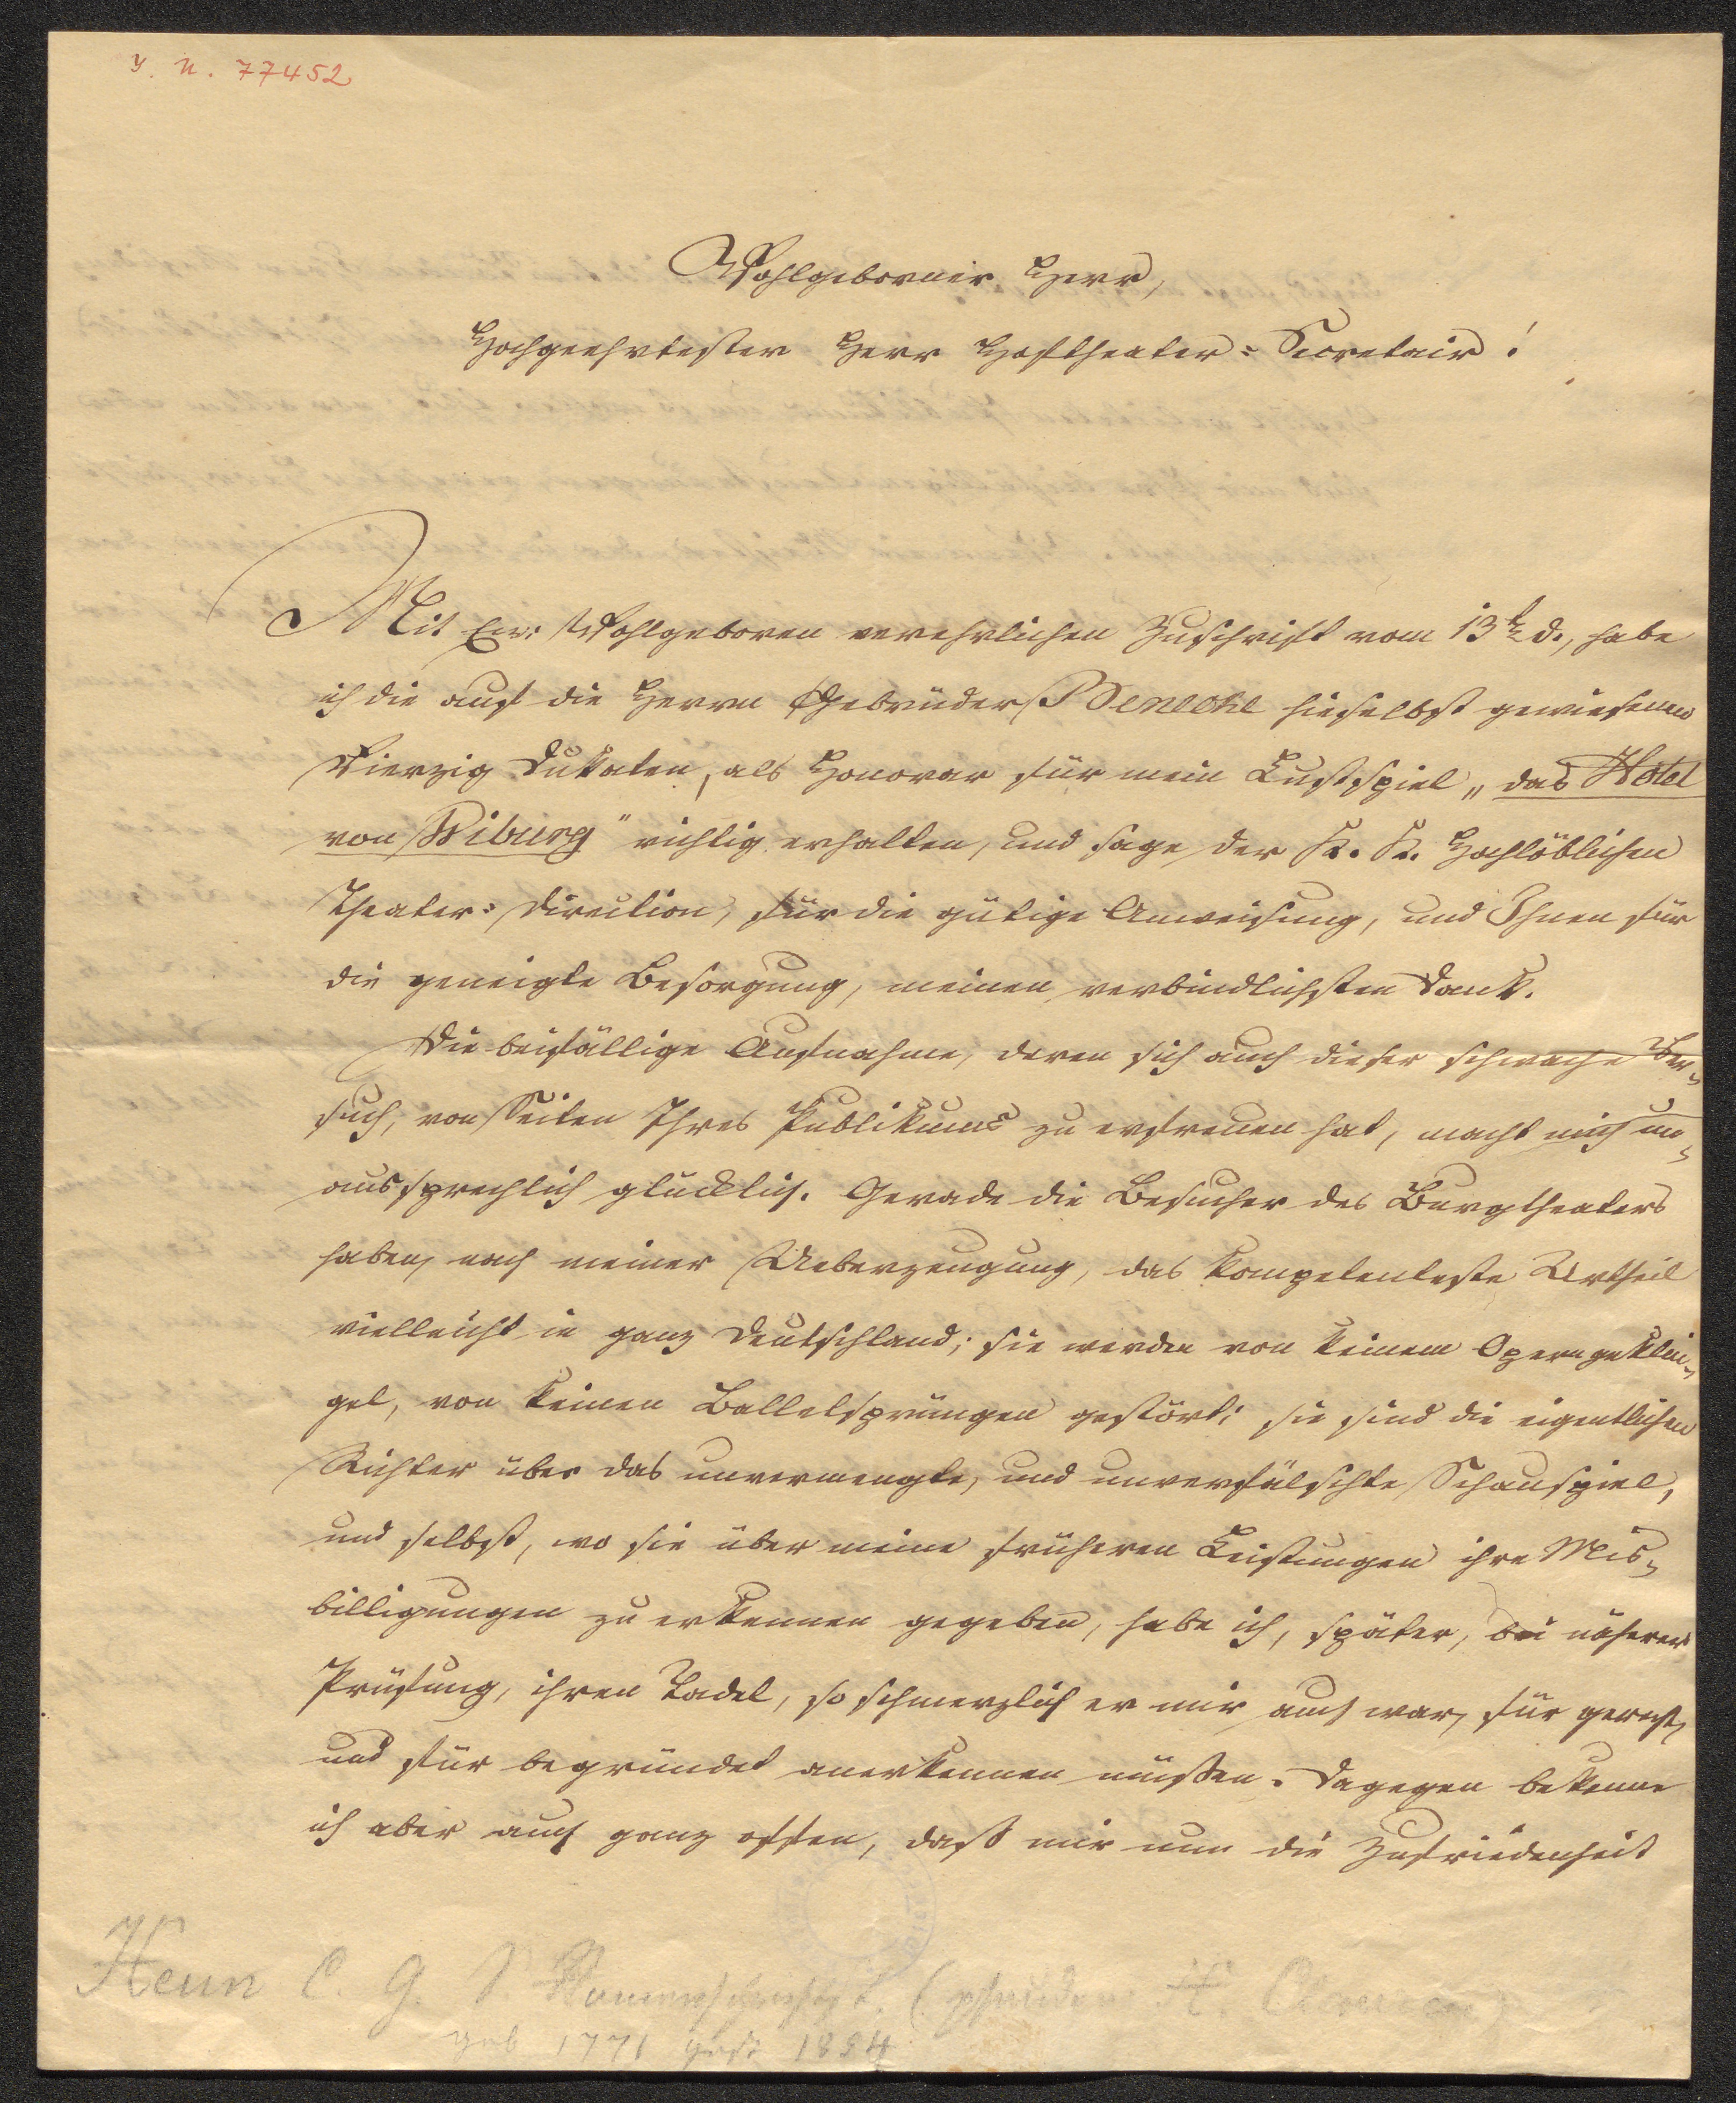 I. N. 77452
Wohlgeborner Herr,
Hochgeehrtester Herr Hoftheater-Secretair!
Mit Ew: Wohlgeboren verehrlichen Zuschrift vom 13t. d., habe
ich die auf die Herrn Gebrüder Benecke hieselbst gewiesenen
Vierzig Dukaten, als Honorar für mein Lustspiel „das Hotel
von Wiburg" richtig erhalten, und sage der K. K. Hochlöblichen
Theater-Direction, für die gütige Anweisung, und Ihnen für
die geneigte Besorgung, meinen verbindlichsten Dank.
Die beifällige Aufnahme, deren sich auch dieser schwache Ver-
such, von Seiten Ihres Publikums zu erfreuen hat, macht mich un-
aussprechlich glücklich. Gerade die Besucher des Burgtheaters
haben, nach meiner Ueberzeugung, das kompetenteste Urtheil
vielleicht in ganz Deutschland; sie werden von keinem Operngeklin-
gel, von keinen Balletsprüngen gestört; sie sind die eigentlichen
Richter über das unvermengte, und unverfälschte Schauspiel,
und selbst, wo sie über meine früheren Leistungen ihre Mis-
billigungen zu erkennen gegeben, habe ich, später, bei näherer
Prüfung, ihren Tadel, so schmerzlich er mir auch war, für gerecht,
und für begründet anerkennen müssen. Dagegen bekenne
ich aber auch ganz offen, daß mir nun die Zufriedenheit
Heun C. G. S. (pseudon H. Clauren)
geb 1771 gest 1854